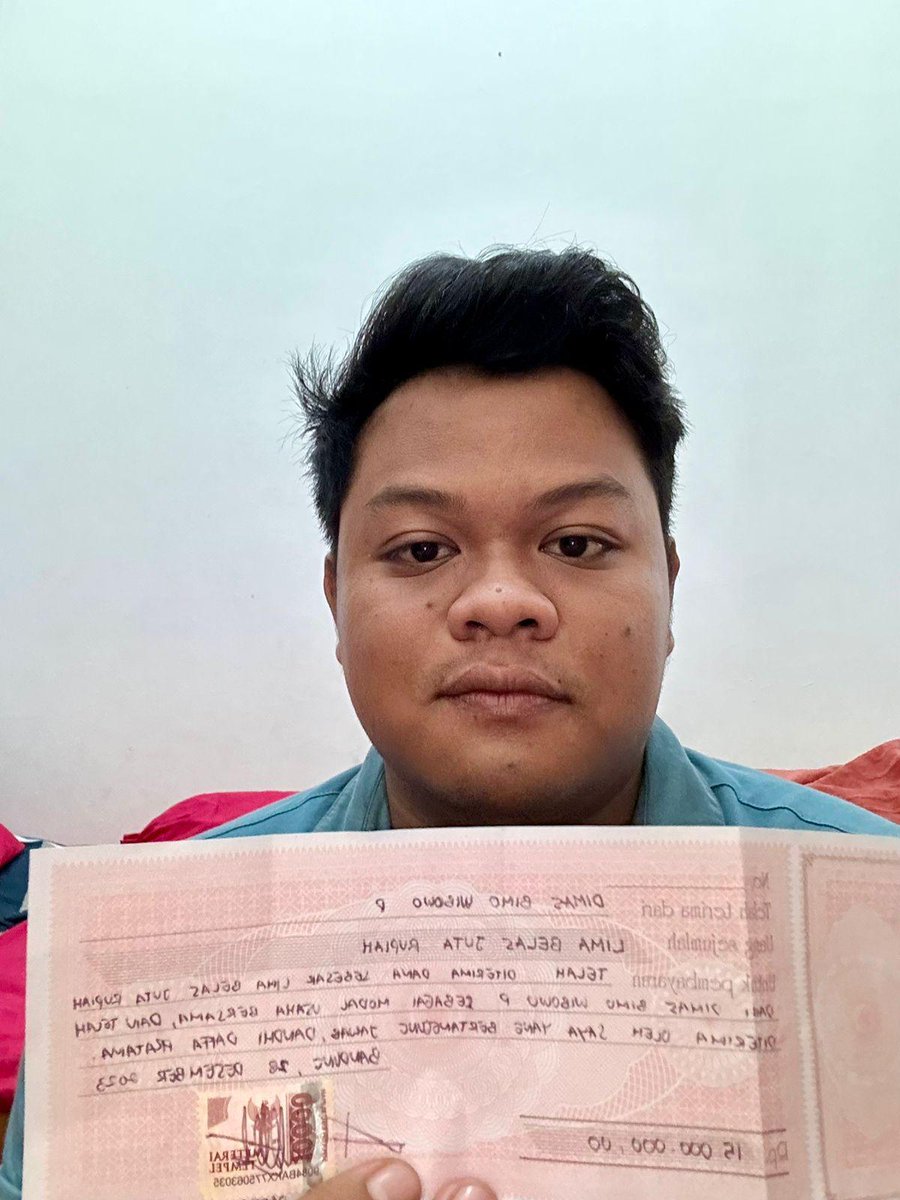 No.
Telah terima dari DIMAS BIMO WIBOWO P
Uang sejumlah LIMA BELAS JUTA RUPIAH
Untuk pembayaran TELAH DITERIMA DANA SEBESAR LIMA BELAS JUTA RUPIAH
DARI DIMAS BIMO WIBOWO P SEBAGAI MODAL USAHA BERSAMA, DAN TELAH
DITERIMA OLEH SAYA YANG BERTANGGUNG JAWAB, DANDHI DAFFA PRATAMA.
BANDUNG, 28 DESEMBER 2023
Rp. 15.000.000,00
METERAI
TEMPEL